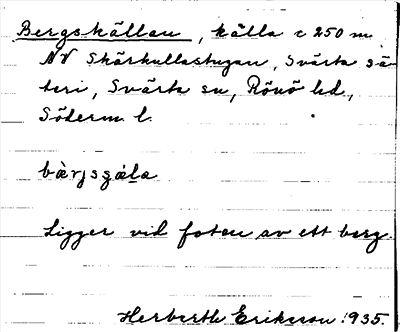 Bergskällan, källa c 250 m
NV Skärkullastugan, Svärta sä-
teri, Svärta sn, Rönö hd,
Söderm. l.
bàrjsɡála
Ligger vid foten av ett berg.
Herberth Eriksson 1935.